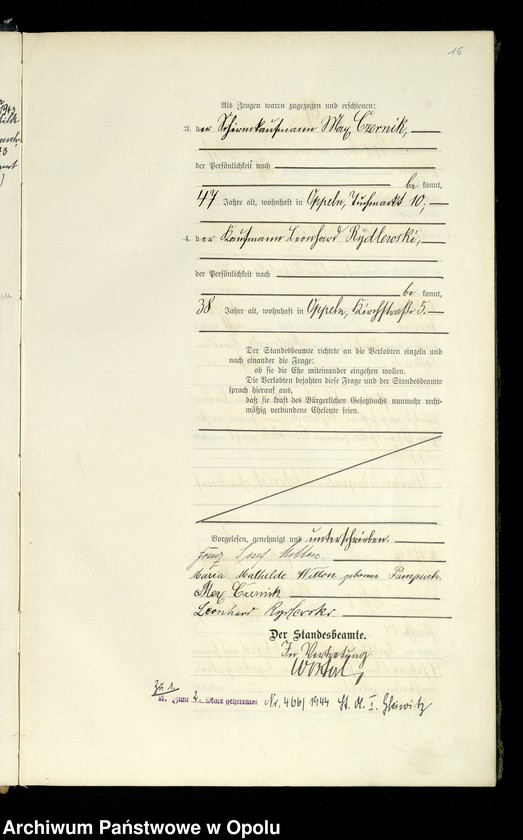 16
Als Zeugen waren zugezogen und erschienen:
3. der Schirmkaufmann Max Czernik,
der Persönlichkeit nach
be kannt,
47 Jahre alt, wohnhaft in Oppeln, Tuchmarkt 10;
4. der Kaufmann Leonhard Rydlewski,
der Persönlichkeit nach
be kannt,
38 Jahre alt, wohnhaft in Oppeln, Kirchstraße 5.
Der Standesbeamte richtete an die Verlobten einzeln und
nach einander die Frage:
ob sie die Ehe miteinander eingehen wollen.
Die Verlobten bejahten diese Frage und der Standesbeamte
sprach hierauf aus,
daß sie kraft des Bürgerlichen Gesetzbuchs nunmehr recht-
mäßig verbundene Eheleute seien.
Vorgelesen, genehmigt und unterschrieben.
Franz Josef Witton.
Maria Mathilde Witton geborene Pampuch.
Max Czernik
Leonhard Rydlewski
Der Standesbeamte.
In Vertretung
Zu 1
Zum 2. Male geheiratet Nr. 466/1944 St. A. I. Gleiwitz
Archiwum Państwowe w Opolu